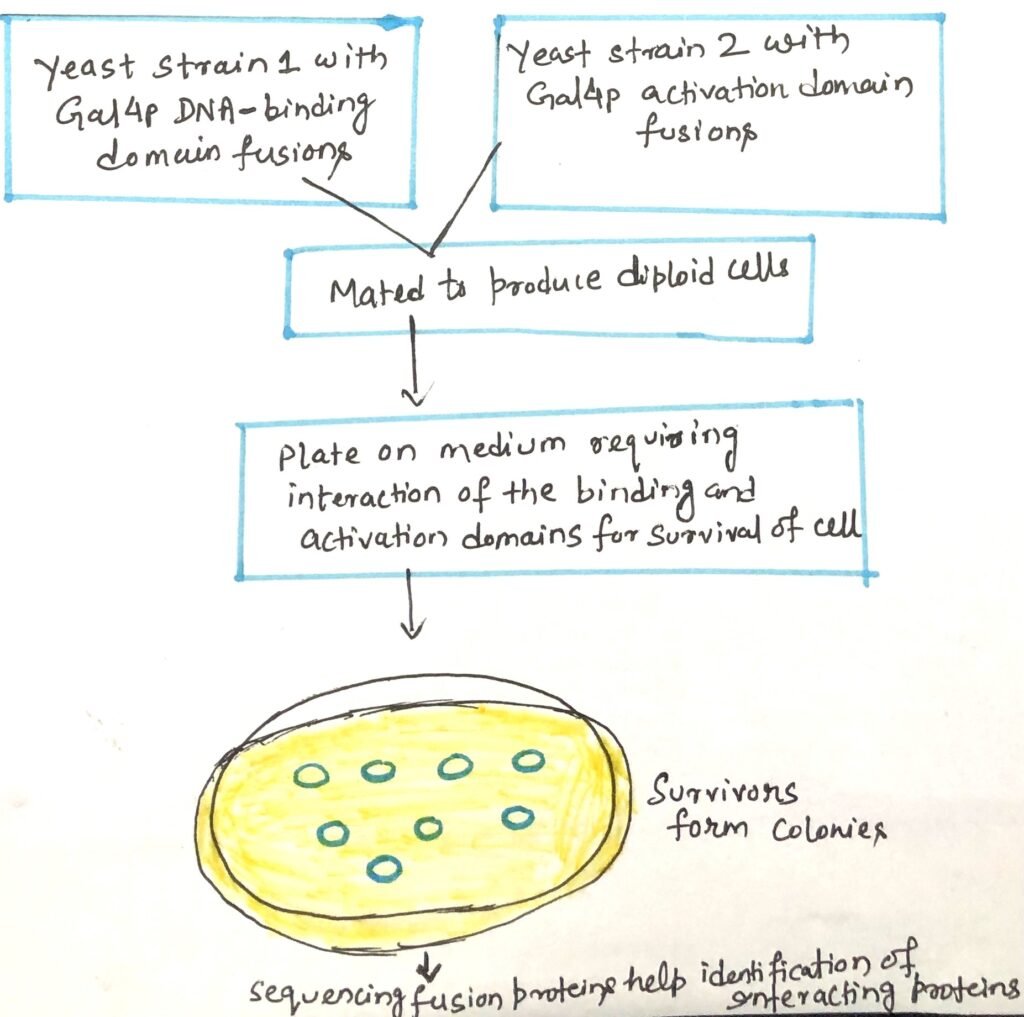 Yeast strain 1 with
Gal4p DNA-binding
domain fusions
Yeast strain 2 with
Gal4p activation domain
fusions
Mated to produce diploid cells
Plate on medium requiring
interaction of the binding and
activation domains for survival of cell
Survivors
form colonies
sequencing fusion proteins help identification of
interacting proteins